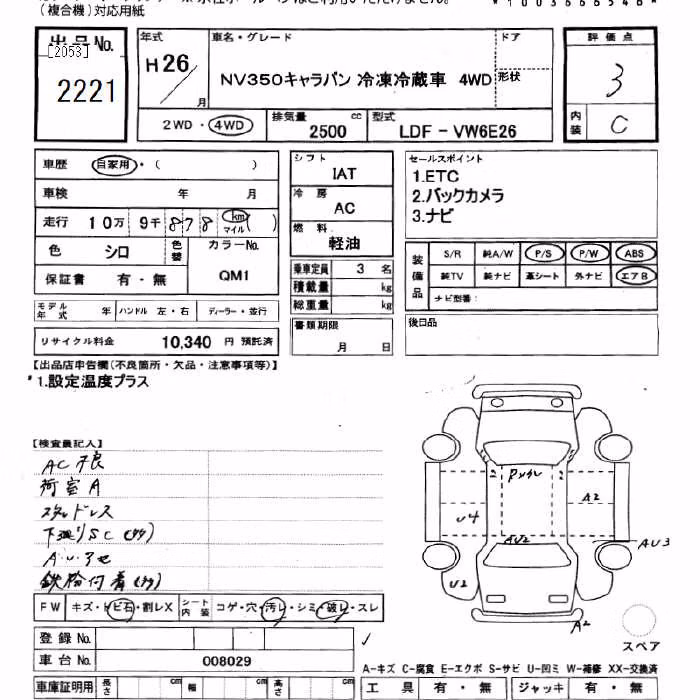 (複合機)対応用紙
出品No.
[2053]
2221
年式
H26/
月
車名・グレード
NV350キャラバン 冷凍冷蔵車 4WD
ドア
形状
評価点
3
内装
C
2WD・4WD
排気量
2500
cc
型式
LDF-VW6E26
車歴
自家用・( )
車検
年 月
走行
10万 9千 878
km
マイル
( )
色
シロ
色替
カラーNo.
QM1
保証書
有・無
シフト
IAT
冷房
AC
燃料
軽油
乗車定員
3 名
積載量
kg
総重量
kg
セールスポイント
1.ETC
2.バックカメラ
3.ナビ
装備品
S/R 純A/W P/S P/W ABS
純TV 純ナビ 革シート 外ナビ エアB
ナビ型番:
モデル年式
年
ハンドル 左・右
ディーラー・並行
リサイクル料金
10,340 円 預託済
書類期限
月 日
後日品
【出品店申告欄(不良箇所・欠品・注意事項等)】
*1.設定温度プラス
【検査員記入】
AC不良
荷室A
スタッドレス
下廻りSC(タタ)
鉄粉付着(タタ)
FW
キズ・トビ石・割レX
シート内装
コゲ・穴・汚レ・シミ・破レ・スレ
登録No.
車台No.
008029
車庫証明用
長さ
cm
幅
cm
高さ
cm
Rメクレ
A2
U4
AU2
AU3
U2
A2
スペア
A-キズ C-腐食 E-エクボ S-サビ U-凹ミ W-補修 XX-交換済
工具
有・無
ジャッキ
有・無